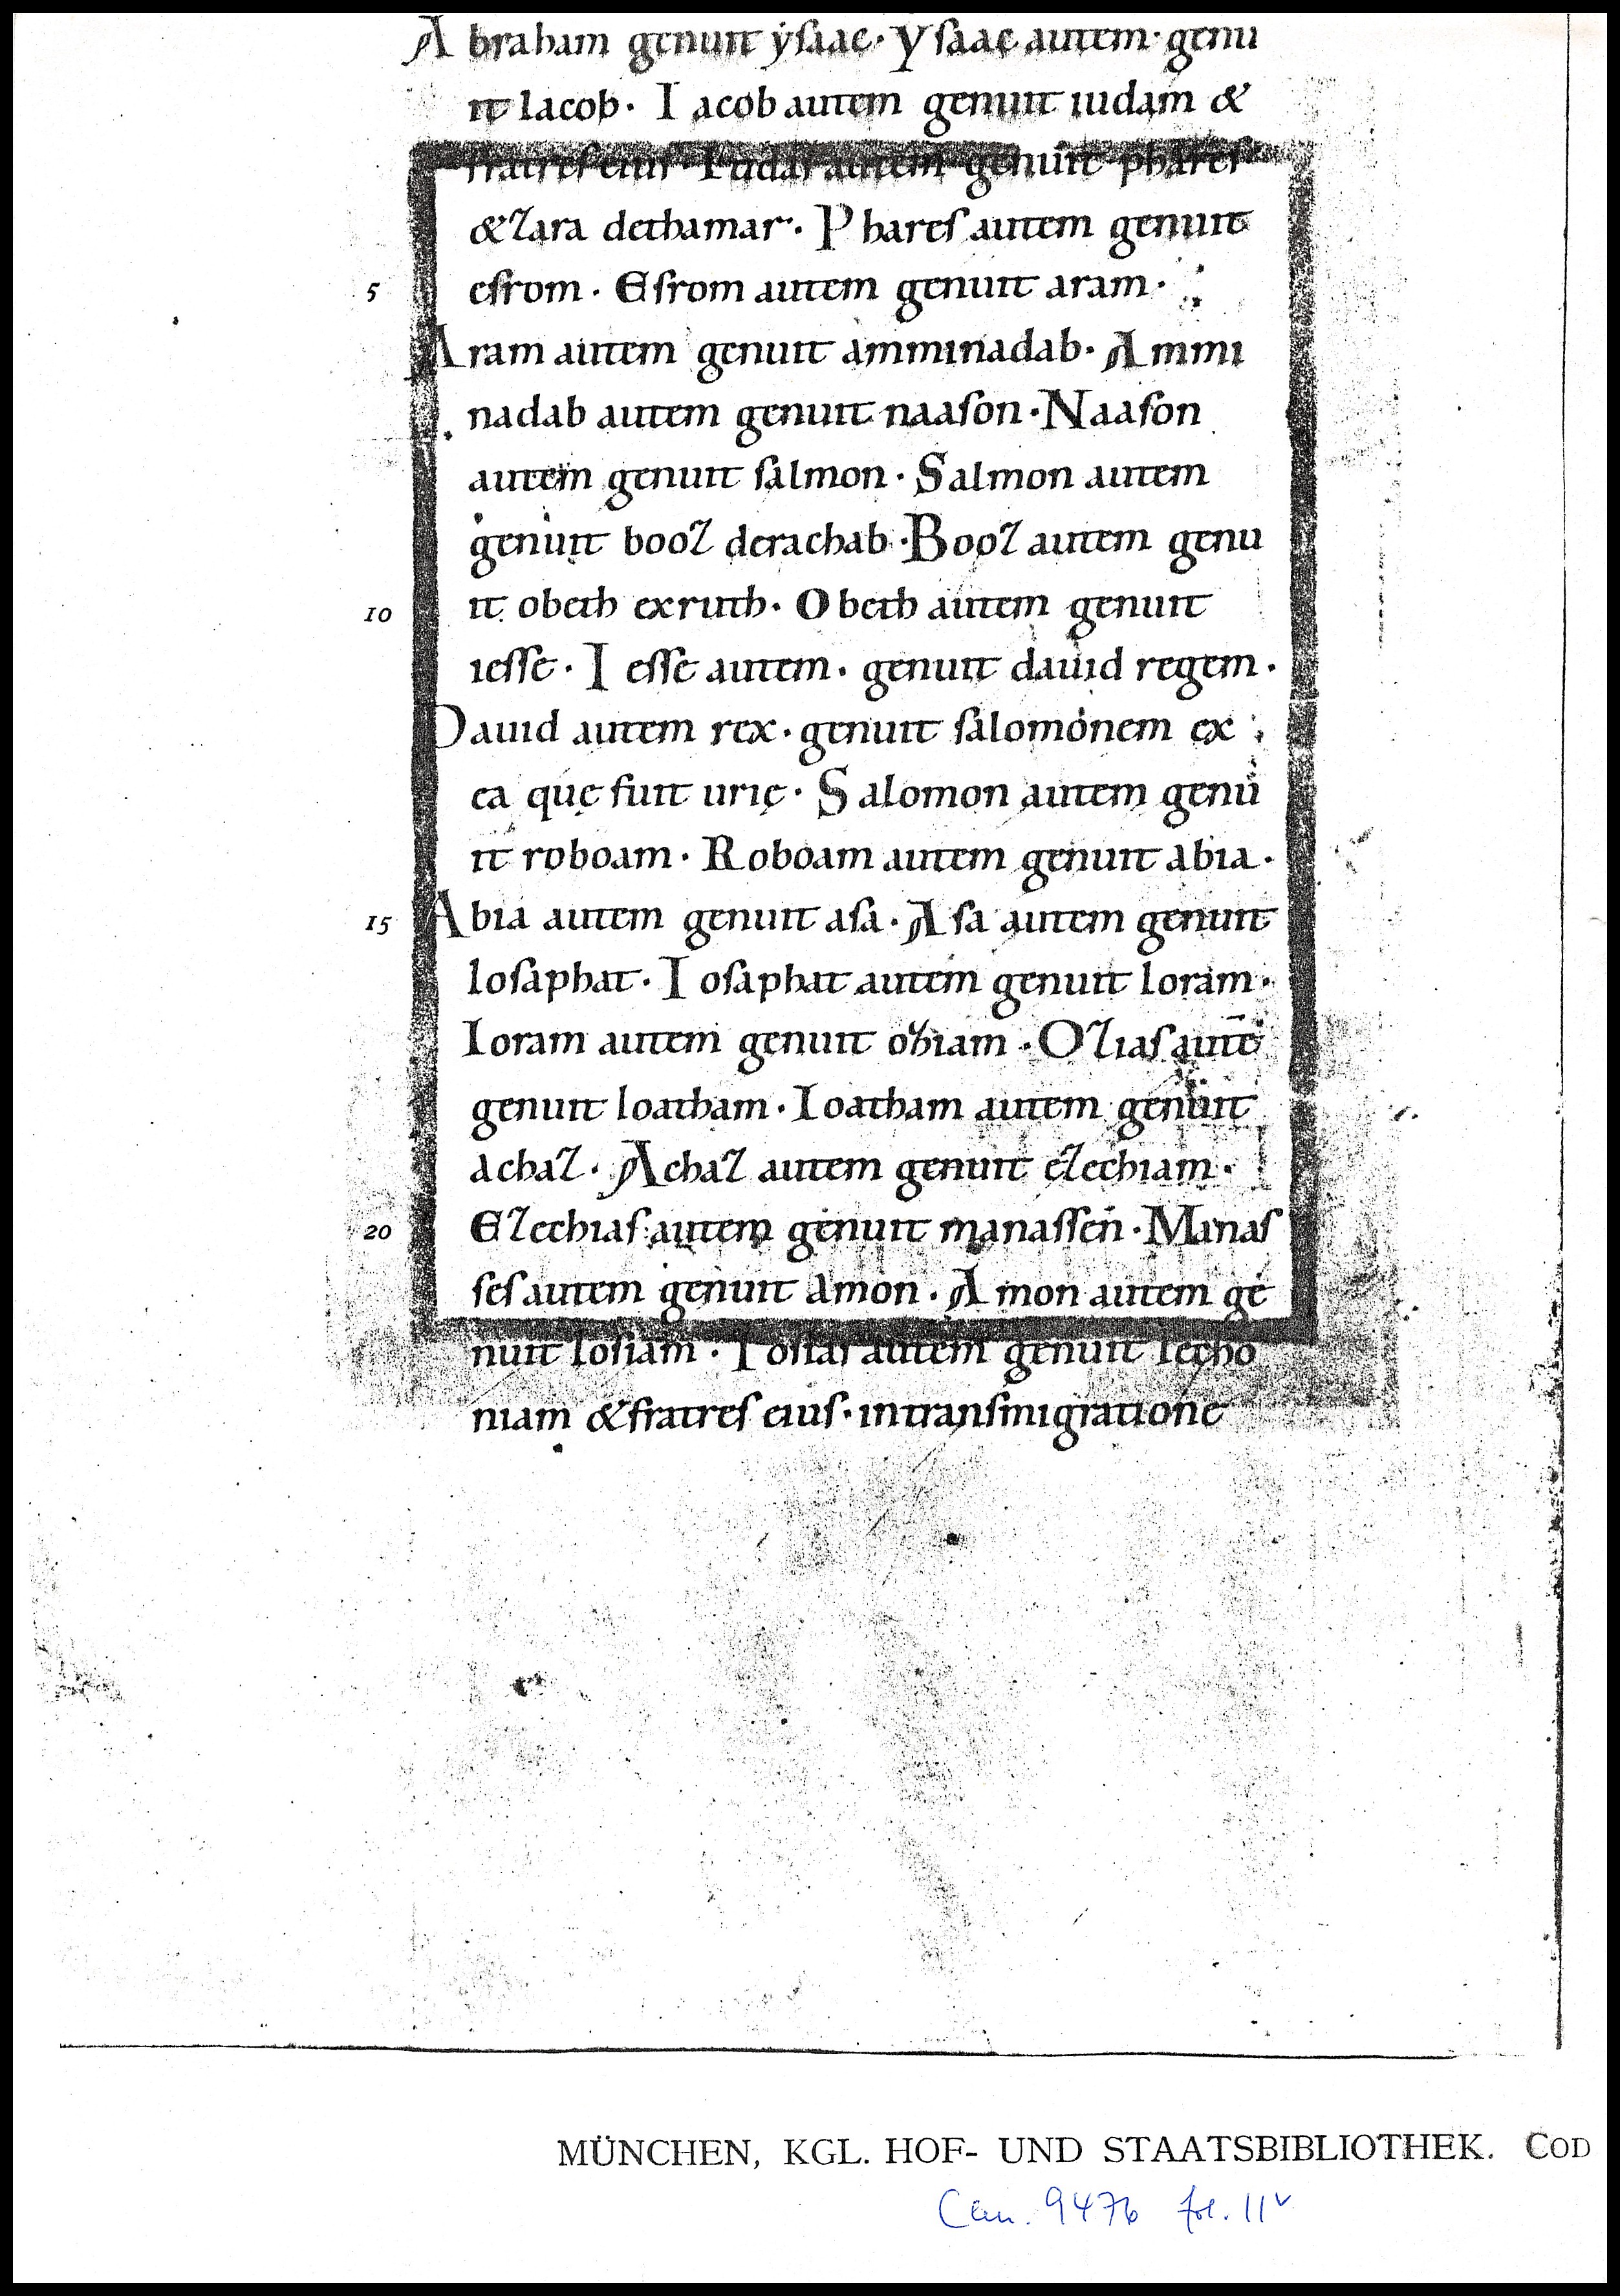 Abraham genuit ẏsaac· Ysaac autem· genu
it Iacob· Iacob autem genuit iudam &
fratres eius· Iudas autem genuit phares
& zara dethamar· Phares autem genuit
5 esrom· Esrom autem genuit aram·
Aram autem genuit amminadab· Ammi
nadab autem genuit naason· Naason
autem genuit salmon· Salmon autem
genuit booz derachab· Booz autem genu
10 it obeth exruth· Obeth autem genuit
iesse· Iesse autem· genuit dauid regem·
Dauid autem rex· genuit salomonem ex
ea quę fuit urię· Salomon autem genu
it roboam· Roboam autem genuit abia·
15 Abia autem genuit asa· Asa autem genuit
Iosaphat· Iosaphat autem genuit Ioram·
Ioram autem genuit oziam· Ozias autē
genuit Ioatham· Ioatham autem genuit
achaz· Achaz autem genuit ezechiam·
20 Ezechias autem genuit manassen· Manas
ses autem genuit amon· Amon autem ge
nuit Iosiam· Iosias autem genuit Iecho
niam & fratres eius· intransmigratione
MÜNCHEN, KGL. HOF- UND STAATSBIBLIOTHEK. COD
Clm. 9476 fol. 11v